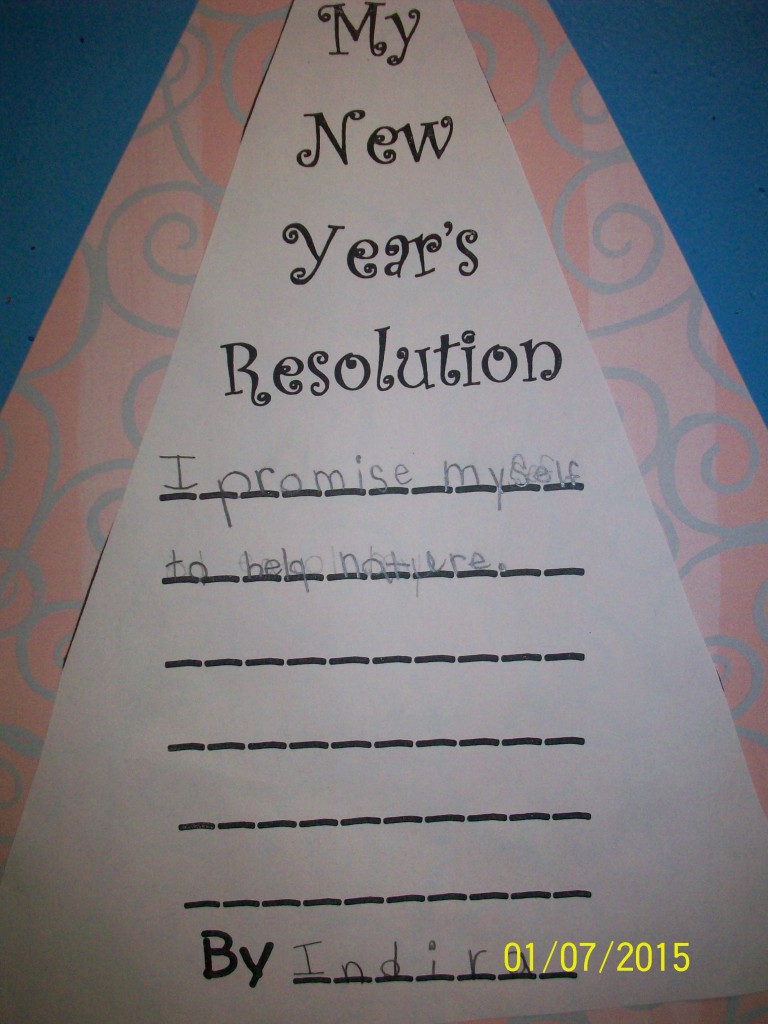 My
New
Year's
Resolution
I promise myself
to help nature.
By Indira
01/07/2015